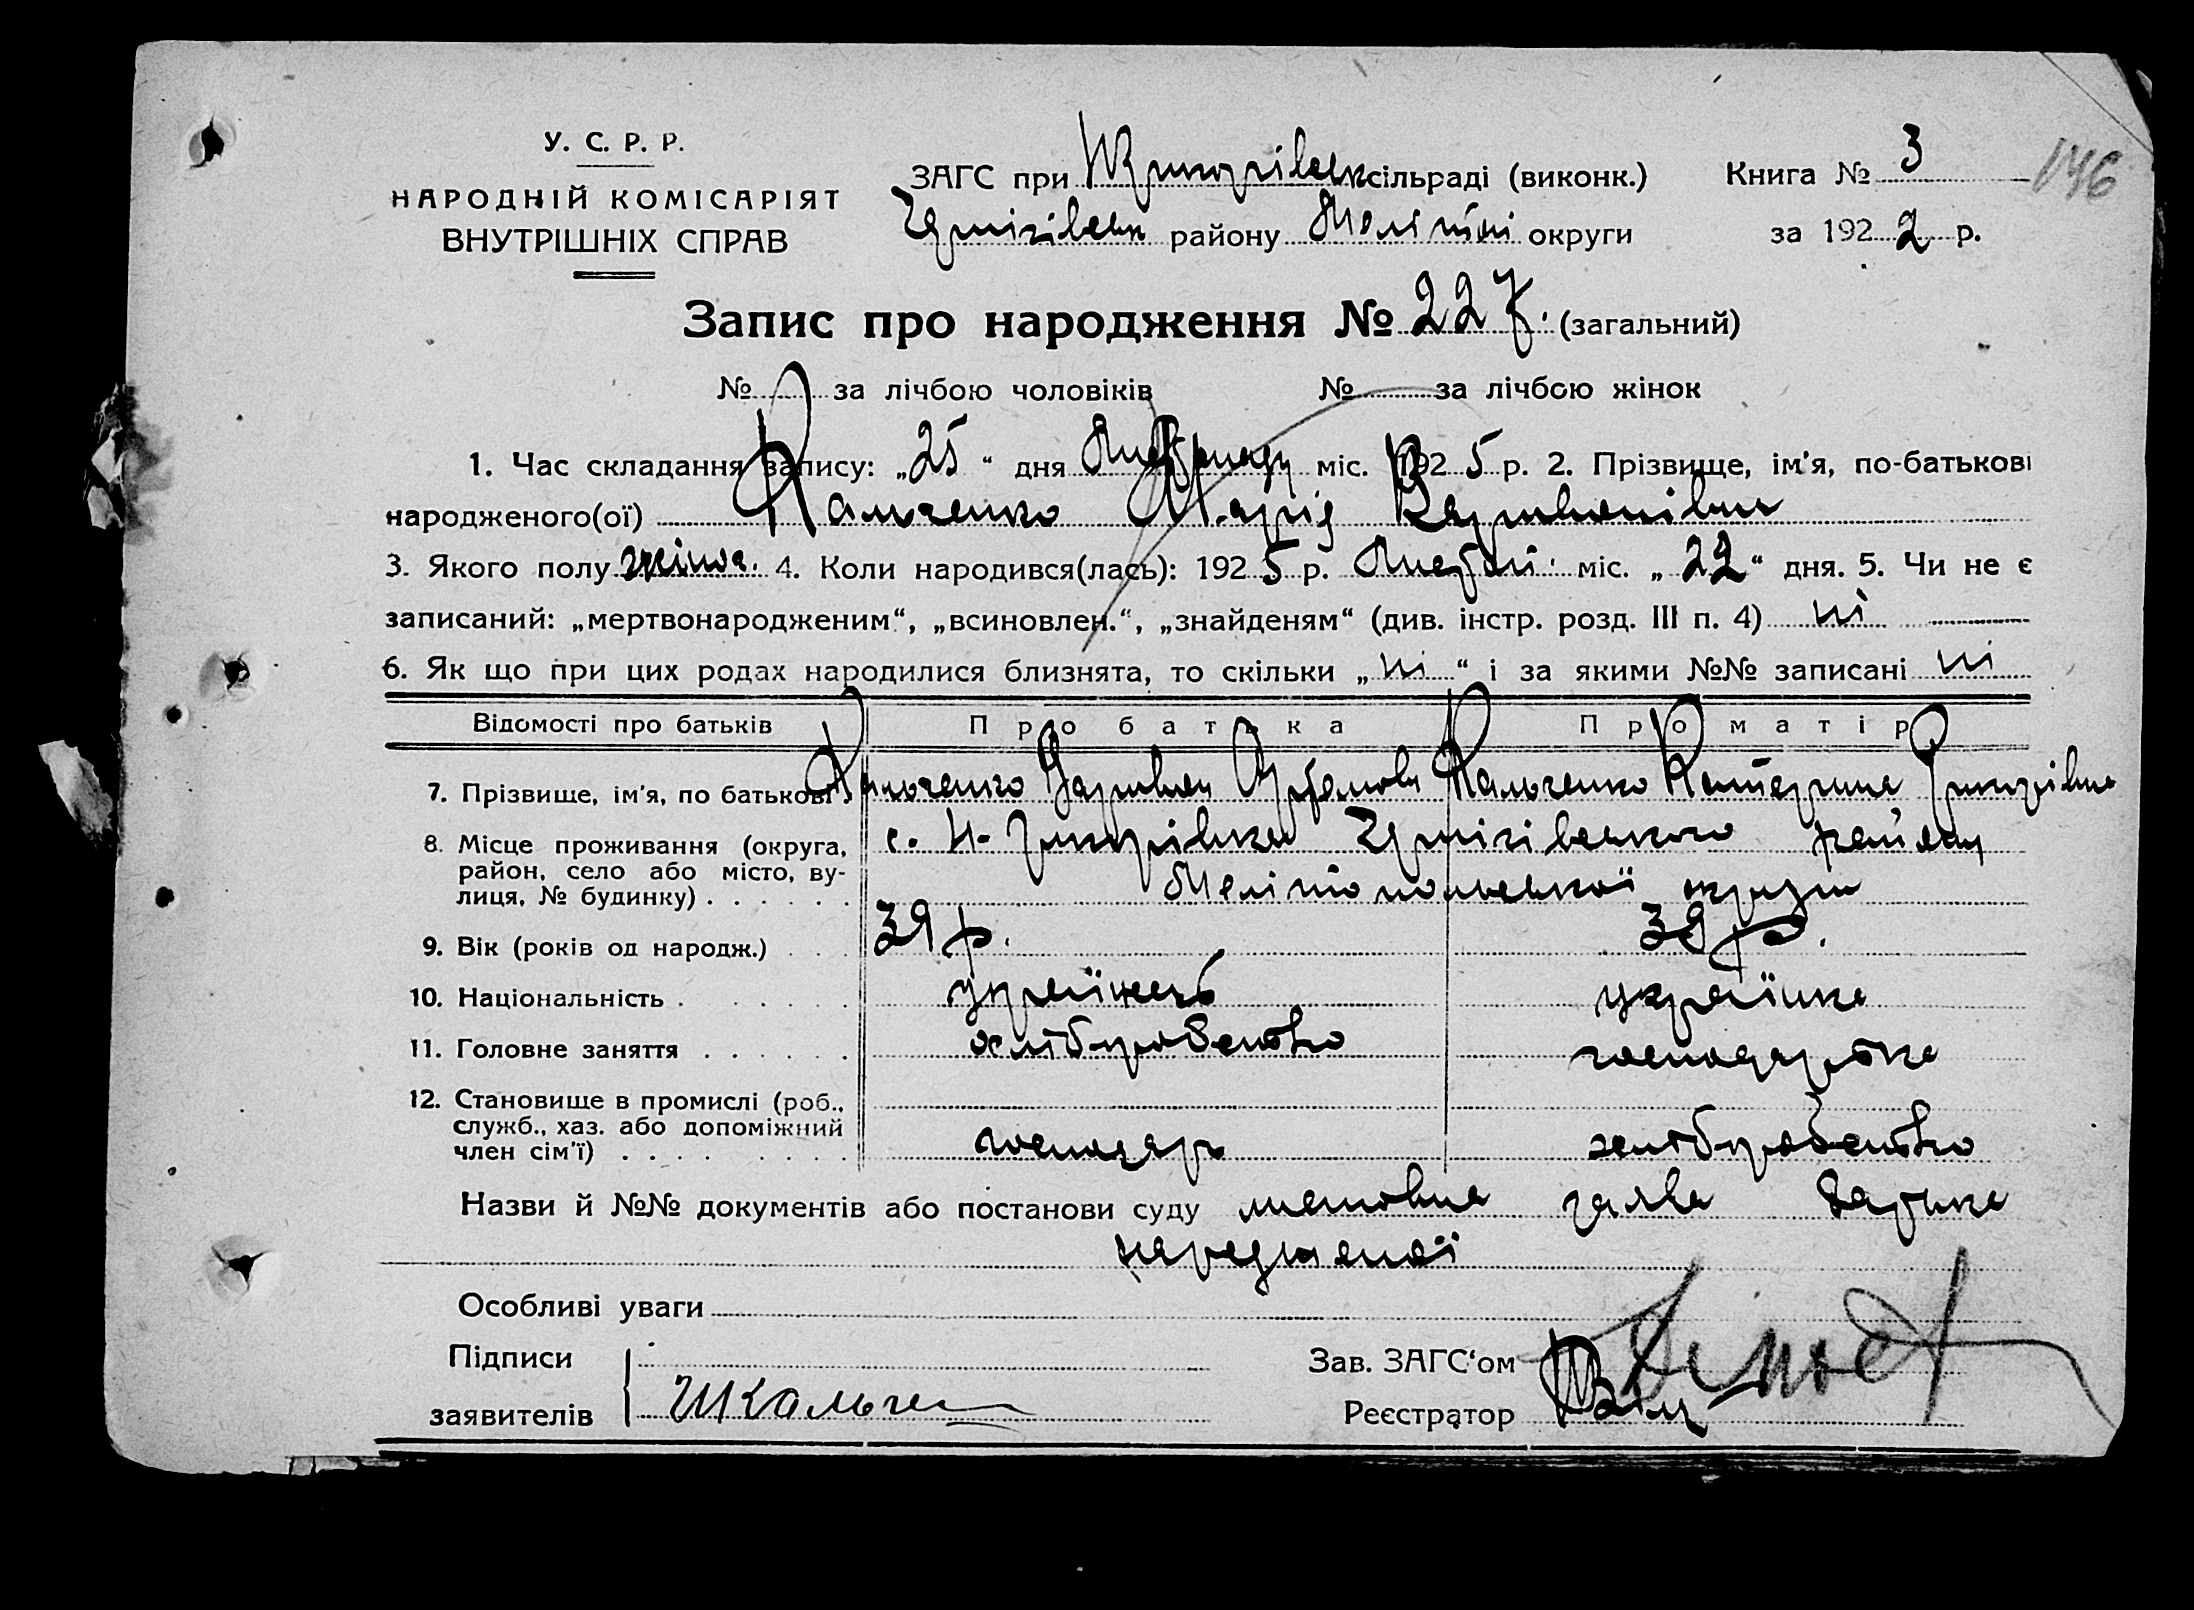 У. С. Р. Р.
НАРОДНІЙ КОМІСАРІЯТ
ВНУТРІШНІХ СПРАВ
ЗАГС при сільраді (виконк.)
району округи
Книга № 3
146
за 1922 р.
Запис про народження № 227. (загальний)
№ за лічбою чоловіків № за лічбою жінок
1. Час складання запису: „25“ дня міс. 1925 р. 2. Прізвище, ім'я, по-батькові
народженого(ої) Кальченко Марія
3. Якого полу 4. Коли народився(лась): 1925 р. міс. „22“ дня. 5. Чи не є
записаний: „мертвонародженим“, „всиновлен.“, „знайденям“ (див. інстр. розд. III п. 4) ні
6. Як що при цих родах народилися близнята, то скільки „ні“ і за якими №№ записані ні
Відомості про батьків Про батька Про матір
7. Прізвище, ім'я, по батькові Кальченко Кальченко Катерина Григорівна
8. Місце проживання (округа, район, село або місто, вулиця, № будинку) с. Н-Григорівка Чернігівського району
Мелітопольської округи
9. Вік (років од народж.) 39 р. 39 р.
10. Національність українець українка
11. Головне заняття хліборобство господарка
12. Становище в промислі (роб., служб., хаз. або допоміжний член сім'ї) господар хліборобство
Назви й №№ документів або постанови суду словесна заява батька
народженої
Особливі уваги
Підписи
заявителів
Зав. ЗАГС'ом
Реєстратор